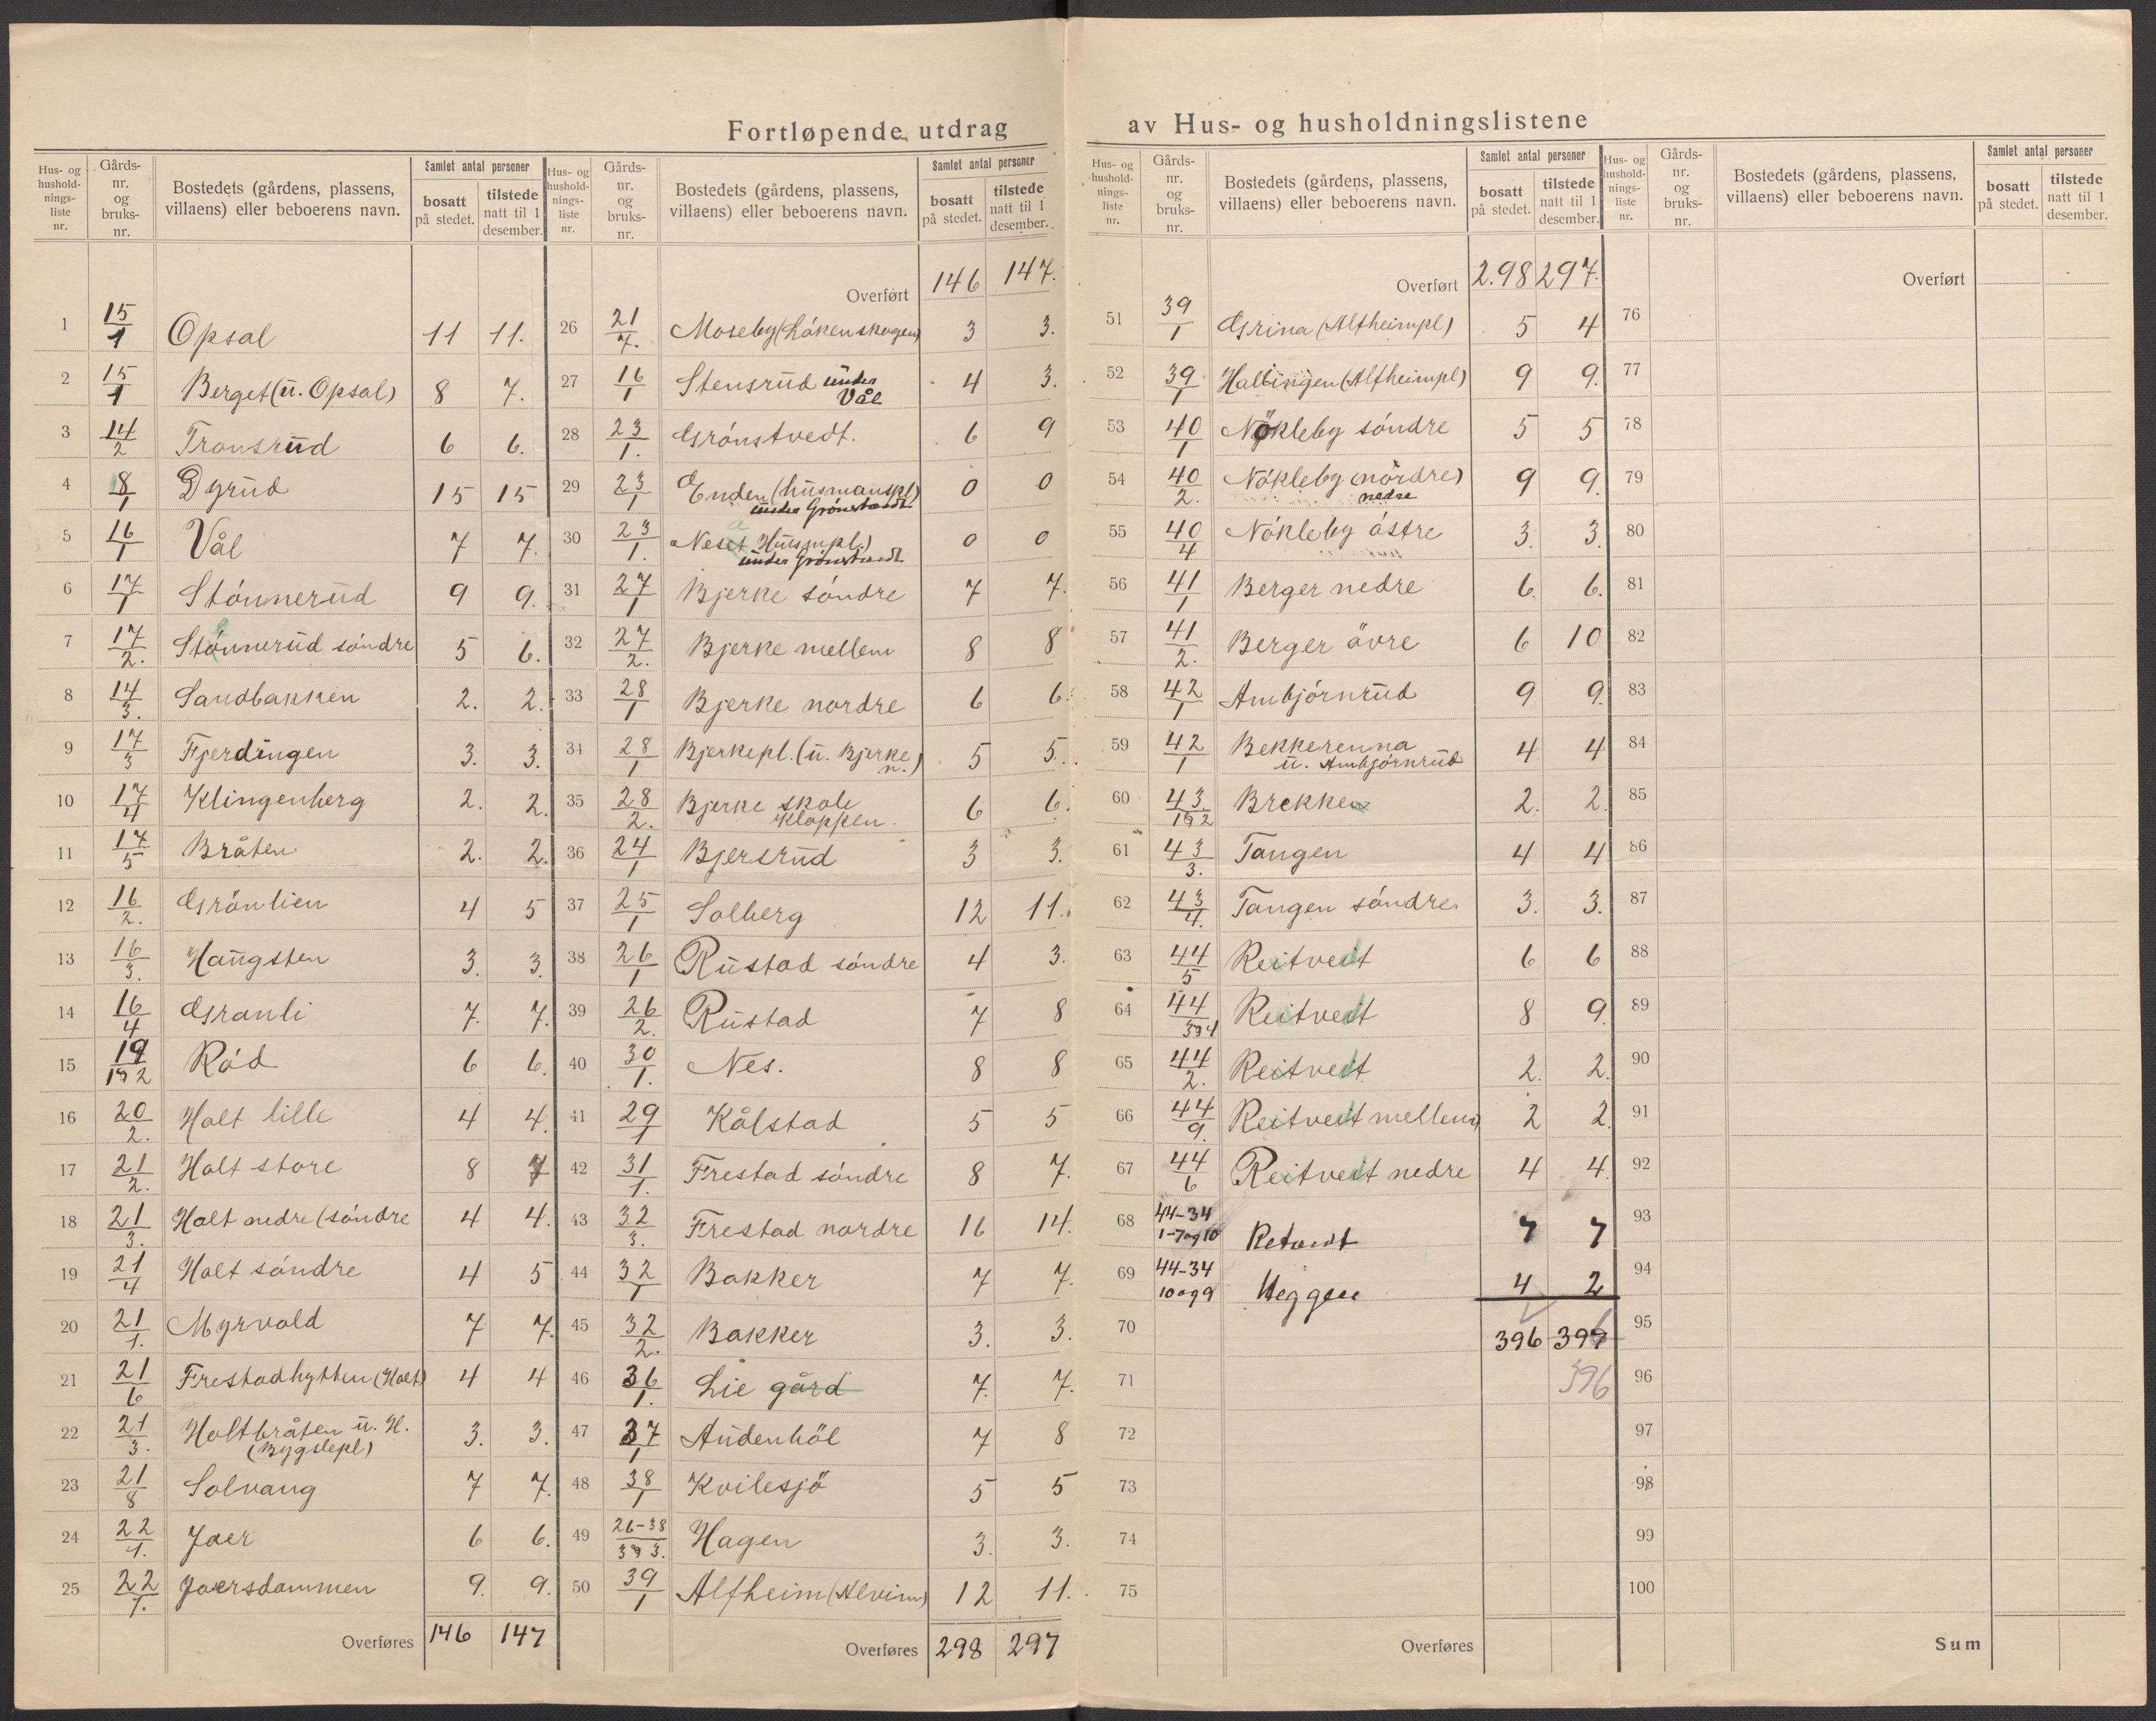 Fortløpende utdrag av Hus- og husholdningslistene
Hus- og hushold-nings-liste nr. | Gårds-nr. og bruks-nr. | Bostedets (gårdens, plassens, villaens) eller beboerens navn. | Samlet antal personer | bosatt på stedet. | tilstede natt til 1 desember.
1 15/1 Opsal 11 11.
2 15/1 Berget (u. Opsal) 8 7.
3 14/2 Tronsrud 6 6.
4 8/1 Dyrud 15 15
5 16/1 Vål 7 7.
6 17/1 Stónnerud 9 9.
7 17/2. Stónnerud sóndre 5 6.
8 14/3. Sandbakken 2. 2.
9 17/3 Fjerdingen 3. 3.
10 17/4 Klingenberg 2. 2.
11 17/5 Bråten 2. 2.
12 16/2. Grönlien 4 5
13 16/3. Haugsten 3. 3.
14 16/4 Granli 7. 7.
15 19/1 og 2 Ród 6 6.
16 20/2. Holt lille 4 4.
17 21/2. Holt store 8 7
18 21/3. Holt nedre (sóndre 4 4.
19 21/4 Holt sóndre 4 5
20 21/1. Myrvold 7 7.
21 21/6 Frestadhytten (Holt) 4 4
22 21/3. Holtbråten u. H.
(Bygslepl) 3. 3.
23 21/8 Solvang 7 7.
24 22/1. Joer 6 6.
25 22/1. Joersdammen 9. 9.
Overføres 146 147
Overført 146 147.
26 21/7. Moseby (Lökenskogen) 3 3.
27 16/1 Stensrud under
Vål 4 3.
28 23/1. Grónstvedt. 6 9
29 23/1 Enden (husmanspl)
under Grónstvedt 0 0
30 23/1. Neset Husmpl.)
under Grónstvedt 0 0
31 27/1 Bjerke sóndre 7 7.
32 27/2. Bjerke mellem 8 8
33 28/1 Bjerke nordre 6 6.
34 28/1 Bjerkepl. (u. Bjerke
n.) 5 5.
35 28/2. Bjerke skole
Kloppen 6 6.
36 24/1 Bjersrud 3 3.
37 25/1 Solberg 12 11.
38 26/1 Rustad sóndre 4 3.
39 26/2. Rustad 7 8
40 30/1. Nes. 8 8
41 29/1 Kålstad 5 5
42 31/1. Frestad sóndre 8 7.
43 32/3. Frestad nordre 16 14.
44 32/1 Bakker 7 7.
45 32/2. Bakker 3. 3.
46 36/1. Lie gård 7. 7.
47 37/1 Audenhöl 7 8
48 38/1 Kvilesjö 5 5
49 26-38/3 og 3. Hagen 3. 3.
50 39/1 Alfheim (Alvim) 12 11.
Overføres 298 297
Hus- og hushold-nings-liste nr. | Gårds-nr. og bruks-nr. | Bostedets (gårdens, plassens, villaens) eller beboerens navn. | Samlet antal personer | bosatt på stedet. | tilstede natt til 1 desember.
Overført 2.98 297.
51 39/1 Grina (Alfheimpl) 5 4
52 39/1 Hallingen (Alfheimpl) 9 9.
53 40/1 Nökleby söndre 5 5
54 40/2. Nökleby (nördre)
nedre 9 9.
55 40/4 Nökleby östre 3. 3.
56 41/1 Berger nedre 6. 6.
57 41/2. Berger övre 6 10
58 42/1 Ambjórnrud 9 9.
59 42/1 Bekkerenna
u. Ambjórnrud 4 4
60 43/1 og 2 Brekke 2. 2.
61 43/3. Tangen 4 4
62 43/4. Tangen sóndre. 3. 3.
63 44/5 Reitveit 6 6
64 44/3 og 4 Reitveit 8 9.
65 44/2. Reitveit 2. 2.
66 44/9. Reitveit mellem 2 2.
67 44/6 Reitveit nedre 4 4.
68 44-34/1-7 og 10 Retveit 7 7
69 44-34/10 og 9 Heggen 4 2
70 396 399
71 396
72
73
74
75
Overføres
Overført
76
77
78
79
80
81
82
83
84
85
86
87
88
89
90
91
92
93
94
95
96
97
98
99
100
Sum